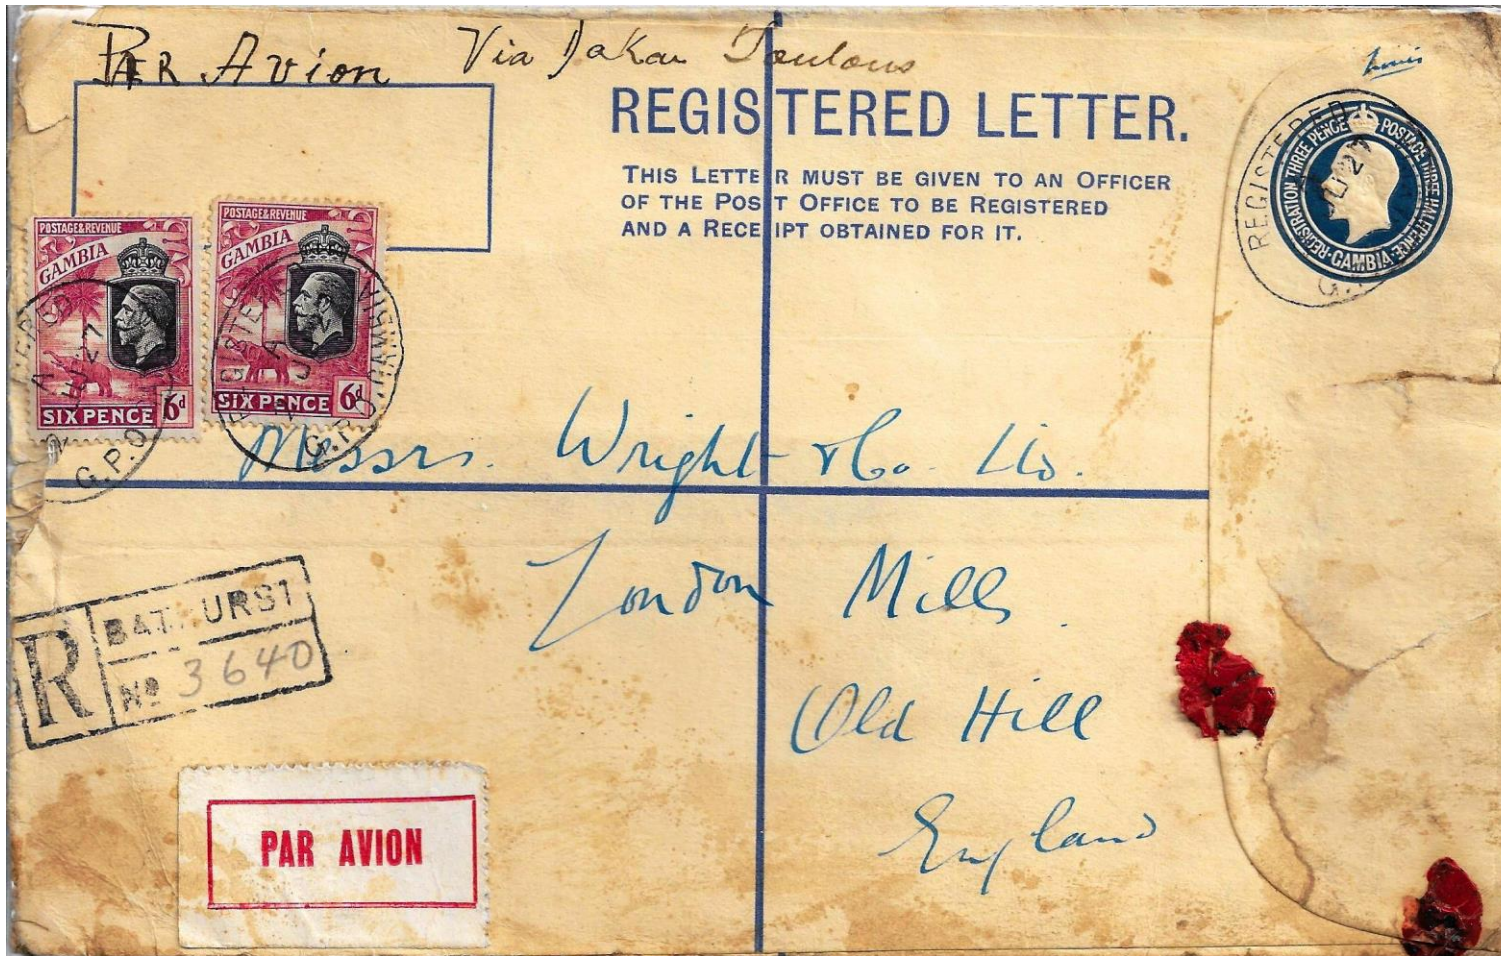 PAR Avion Via Dakar Toulouse
REGISTERED LETTER.
THIS LETTER MUST BE GIVEN TO AN OFFICER
OF THE POST OFFICE TO BE REGISTERED
AND A RECEIPT OBTAINED FOR IT.
REGISTERED
REGISTRATION THREE PENCE · POSTAGE THREE HALFPENCE · GAMBIA
POSTAGE & REVENUE
GAMBIA
SIX PENCE 6d
G.P.O.
POSTAGE & REVENUE
GAMBIA
SIX PENCE 6d
G.P.O. GAMBIA
Messrs. Wright & Co. Ltd.
London Mills
Old Hill
England
R BATHURST
No 3640
PAR AVION